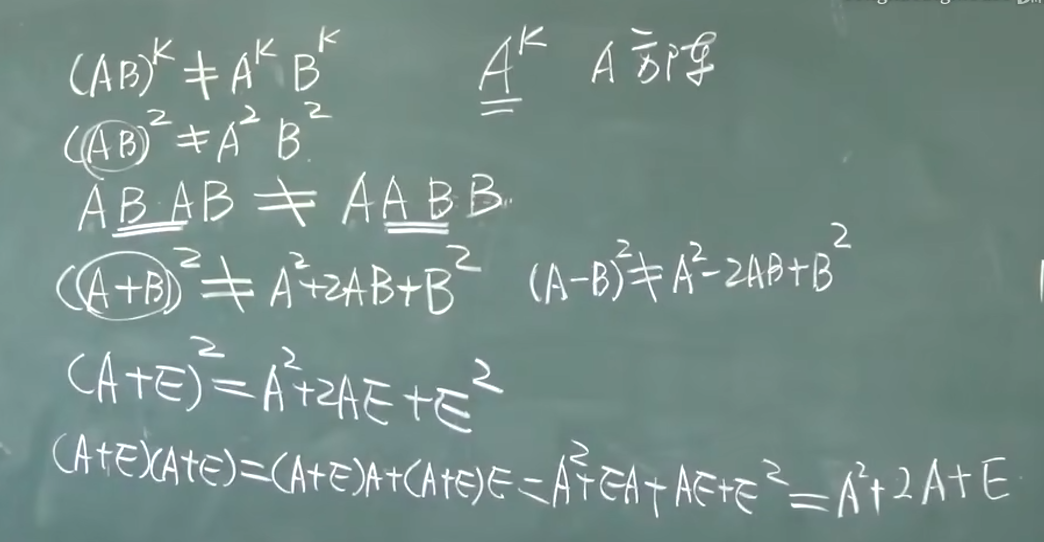 (AB)^K ≠ A^K B^K    A^K  A方阵
(AB)² ≠ A² B²
ABAB ≠ AABB
(A+B)² ≠ A²+2AB+B²    (A-B)² ≠ A²-2AB+B²
(A+E)² = A²+2AE+E²
(A+E)(A+E)=(A+E)A+(A+E)E=A²+EA+AE+E²=A²+2A+E